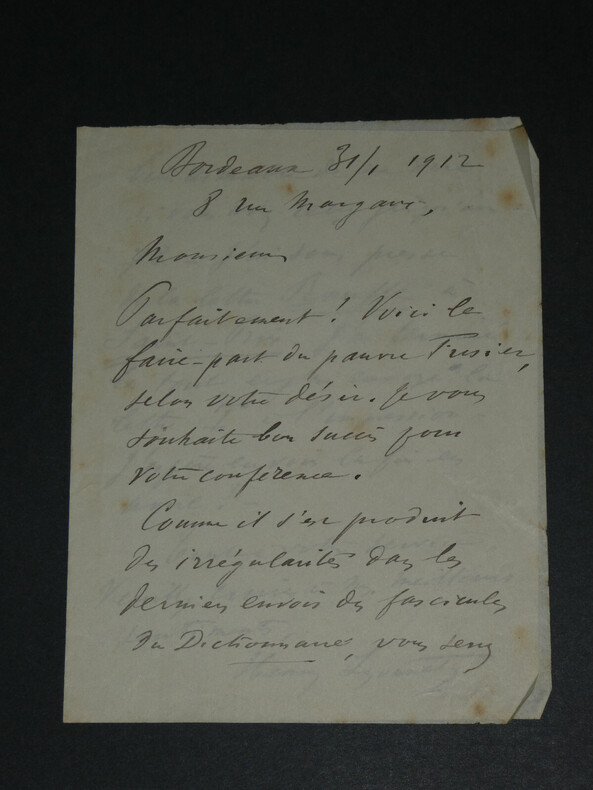 Bordeaux 31/1 1912
8 rue Margaux,
Monsieur
Parfaitement ! Voici le
faire-part du pauvre
selon votre désir. Je vous
souhaite bon succès pour
votre conférence.
Comme il s'est produit
des irrégularités dans les
derniers envois des fascicules
du Dictionnaire, vous